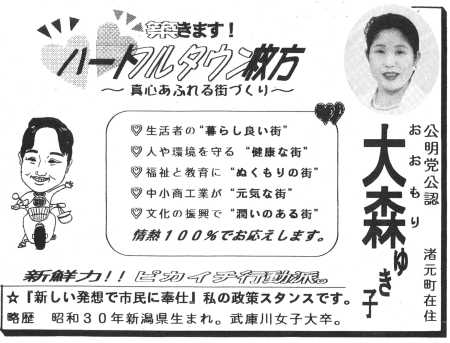 築きます！
ハートフルタウン枚方
～真心あふれる街づくり～
♡生活者の“暮らし良い街”
♡人や環境を守る“健康な街”
♡福祉と教育に“ぬくもりの街”
♡中小商工業が“元気な街”
♡文化の振興で“潤いのある街”
情熱１００％でお応えします。
公明党公認
渚元町在住
おおもり
大森ゆき子
新鮮力！！ピカイチ行動派。
☆『新しい発想で市民に奉仕』私の政策スタンスです。
略歴　昭和３０年新潟県生まれ。武庫川女子大卒。